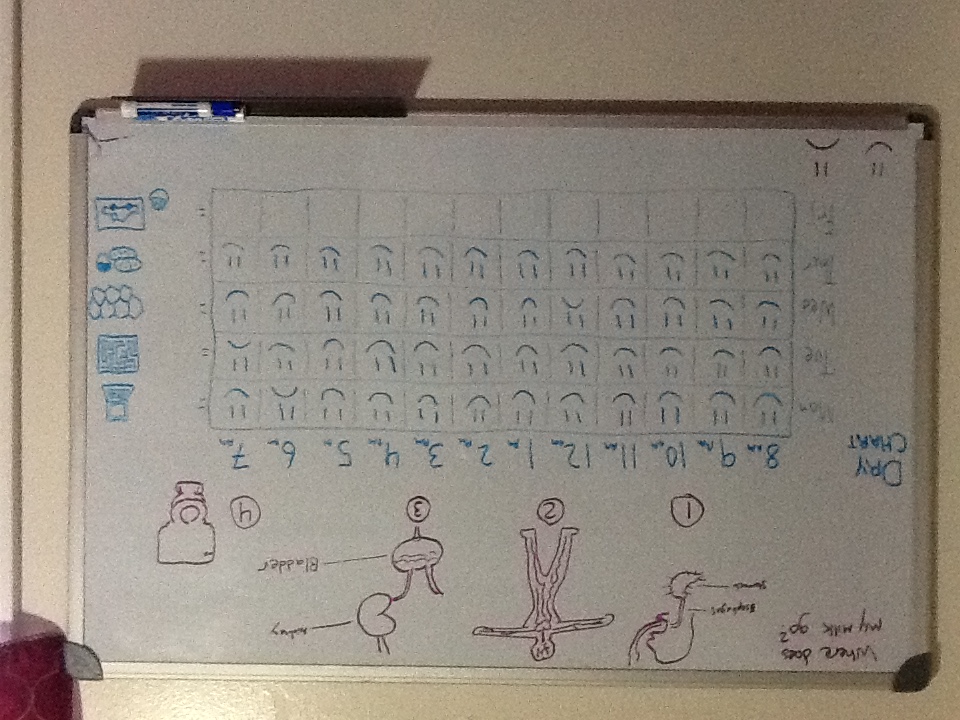 Where does
my milk go?
Esophagus
Stomach
Kidney
Bladder
1 2 3 4
DRY
CHART
8am 9am 10am 11am 12pm 1pm 2pm 3pm 4pm 5pm 6pm 7pm
Mon =
Tue =
Wed =
Thur =
Fri =